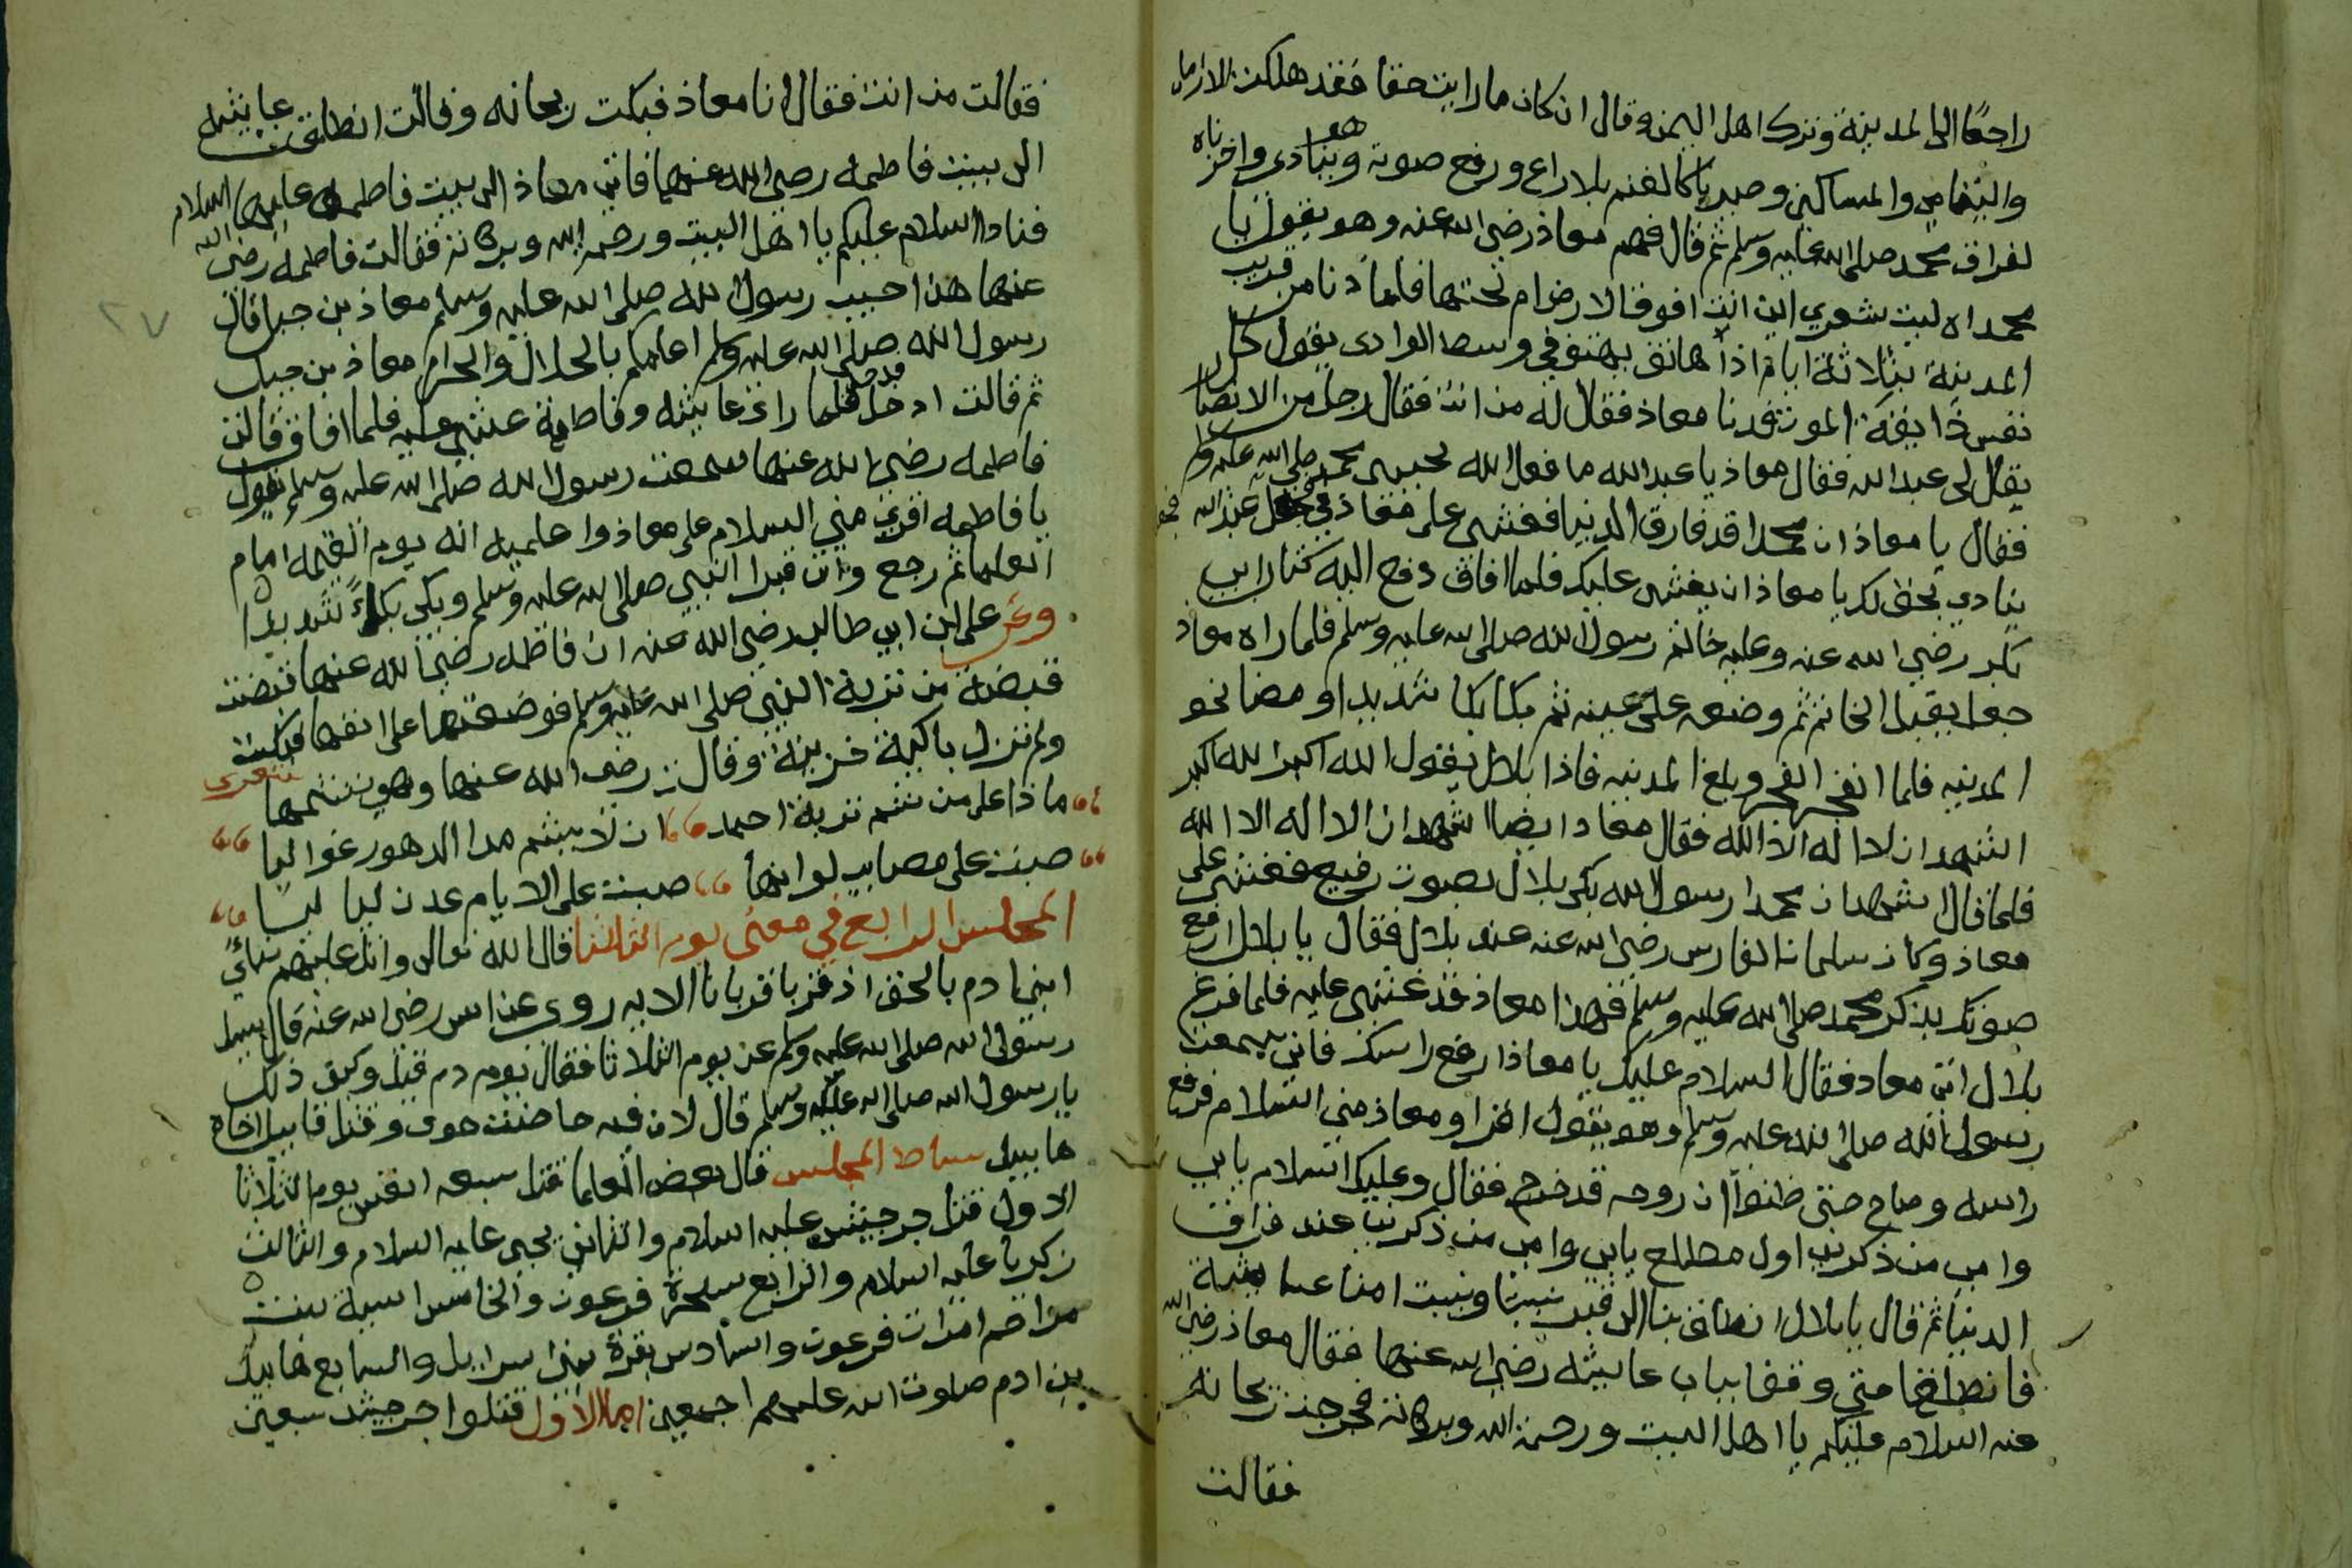 راجعًا الى المدينة وترك اهل اليمن وقال ان كان ما رايت حقا فقد هلكت الارامل
واليتامى والمساكين وصرنا كالغنم بلا راع ورفع صوته وهو ينادي واحزناه
لفراق محمد صلى الله عليه وسلم ثم قال فهم معاذ رضي الله عنه وهو يقول يا
محمداه ليت شعري اين انت افوق الارض ام تحتها فلما دنا من قريب
المدينة بثلاثة ايام اذا هاتف يهتف في وسط الوادى يقول كل
نفس ذايقة الموت فدنا معاذ فقال له من انت فقال رجل من الانصار
يقال لي عبد الله فقال معاذ يا عبد الله ما فعل الله بحبيبي محمد صلى الله عليه وسلم
فقال يا معاذ ان محمدا قد فارق الدنيا فغشي على معاذ فجعل عبد الله
ينادي بحق لك يا معاذ ان يغشى عليك فلما افاق دفع اليه كتاب ابي
بكر رضي الله عنه وعليه خاتم رسول الله صلى الله عليه وسلم فلما راه معاذ
جعل يقبل الخاتم ثم وضعه على عينه ثم بكا بكا شديدا ومضا نحو
المدينه فلما انفجر الفجر وبلغ المدينه فاذا بلال يقول الله اكبر الله اكبر
اشهد ان لا اله الا الله فقال معاد ايضا اشهد ان لا اله الا الله
فلما قال اشهد ان محمدا رسول الله بكى بلال بصوت رفيع فغشي على
معاذ وكان سلمان الفارس رضي الله عنه عند بلال فقال يا بلال ارفع
صوتك بذكر محمد صلى الله عليه وسلم فهذا معاذ قد غشي عليه فلما فرغ
بلال اتى معاد فقال السلام عليك يا معاذ ارفع راسك فاني سمعت
رسول الله صلى الله عليه وسلم وهو يقول اقراو معاذ مني السلام فرفع
راسه وصاح حتى ظنوا ان روحه قد خرج فقال وعليك السلام بابي
وامي من ذكرني اول مطلع بابي وامي من ذكرني عند فراق
الدنيا ثم قال يا بلال انطلق بنا الى قبر نبينا وبيت امنا عايشة
فانطلقا حتى وقفا بباب عايشه رضي الله عنها فقال معاذ رضي الله
عنه السلام عليكم يا اهل البيت ورحمة الله وبركاته فخرجت ريحانه
فقالت
فقالت من انت فقال انا معاذ فبكت ريحانه وقالت انطلقت عايشه
الى بيت فاطمه رضي الله عنهما فاتى معاذ الى بيت فاطمه عليها السلام
فنادا السلام عليكم يا اهل البيت ورحمة الله وبركاته فقالت فاطمه رضي الله
عنها هذا حبيب رسول الله صلى الله عليه وسلم معاذ بن جبل قال
رسول الله صلى الله عليه وسلم اعلمكم بالحلال والحرام معاذ بن جبل
ثم قالت ادخل فدخل فلما راى عايشه وفاطمة غشي عليه فلما افاق قالت
فاطمه رضي الله عنها سمعت رسول الله صلى الله عليه وسلم يقول
يا فاطمه اقري مني السلام على معاذ واعلميه انه يوم القيمه امام
العلما ثم رجع واتى قبر النبي صلى الله عليه وسلم وبكى بكاءً شديدا
وعن على ابن ابي طالب رضي الله عنه ان فاطمه رضي الله عنها قبضت
قبضة من تربة النبي صلى الله عليه وسلم فوضعتها على انفها فبكت
ولم تزل باكية حزينة وقالت رضي الله عنها وهي تشمها شعرى
ماذا على من شم تربة احمد ان لا يشم مدا الدهور غواليا
صبت على مصايب لو انها صبت على الايام عدن لياليا
المجلس الرابع في معنى يوم الثالثا قال الله تعالى واتل عليهم نباءي
ابني ادم بالحق اذ قربا قربانا الايه روي عن انس رضي الله عنه قال سيل
رسول الله صلى الله عليه وسلم عن يوم الثلاثا فقال يوم دم قيل وكيف ذلك
يا رسول الله صلى الله عليه وسلم قال لان فيه حاضت حوى وقتل قابيل اخاه
هابيل بساط المجلس قال بعض العلما قتل سبعه انفس يوم الثلاثا
الاول قتل جرجيس عليه السلام والثاني يحيى عليه السلام والثالث
زكريا عليه السلام والرابع سحرة فرعون والخامس اسية بنت
مزاحم امرات فرعون والسادس بقرة بني اسرايل والسابع هابيل
بن ادم صلوت الله عليهم اجمعين اما الاول قتلوا جرجيس سبعين